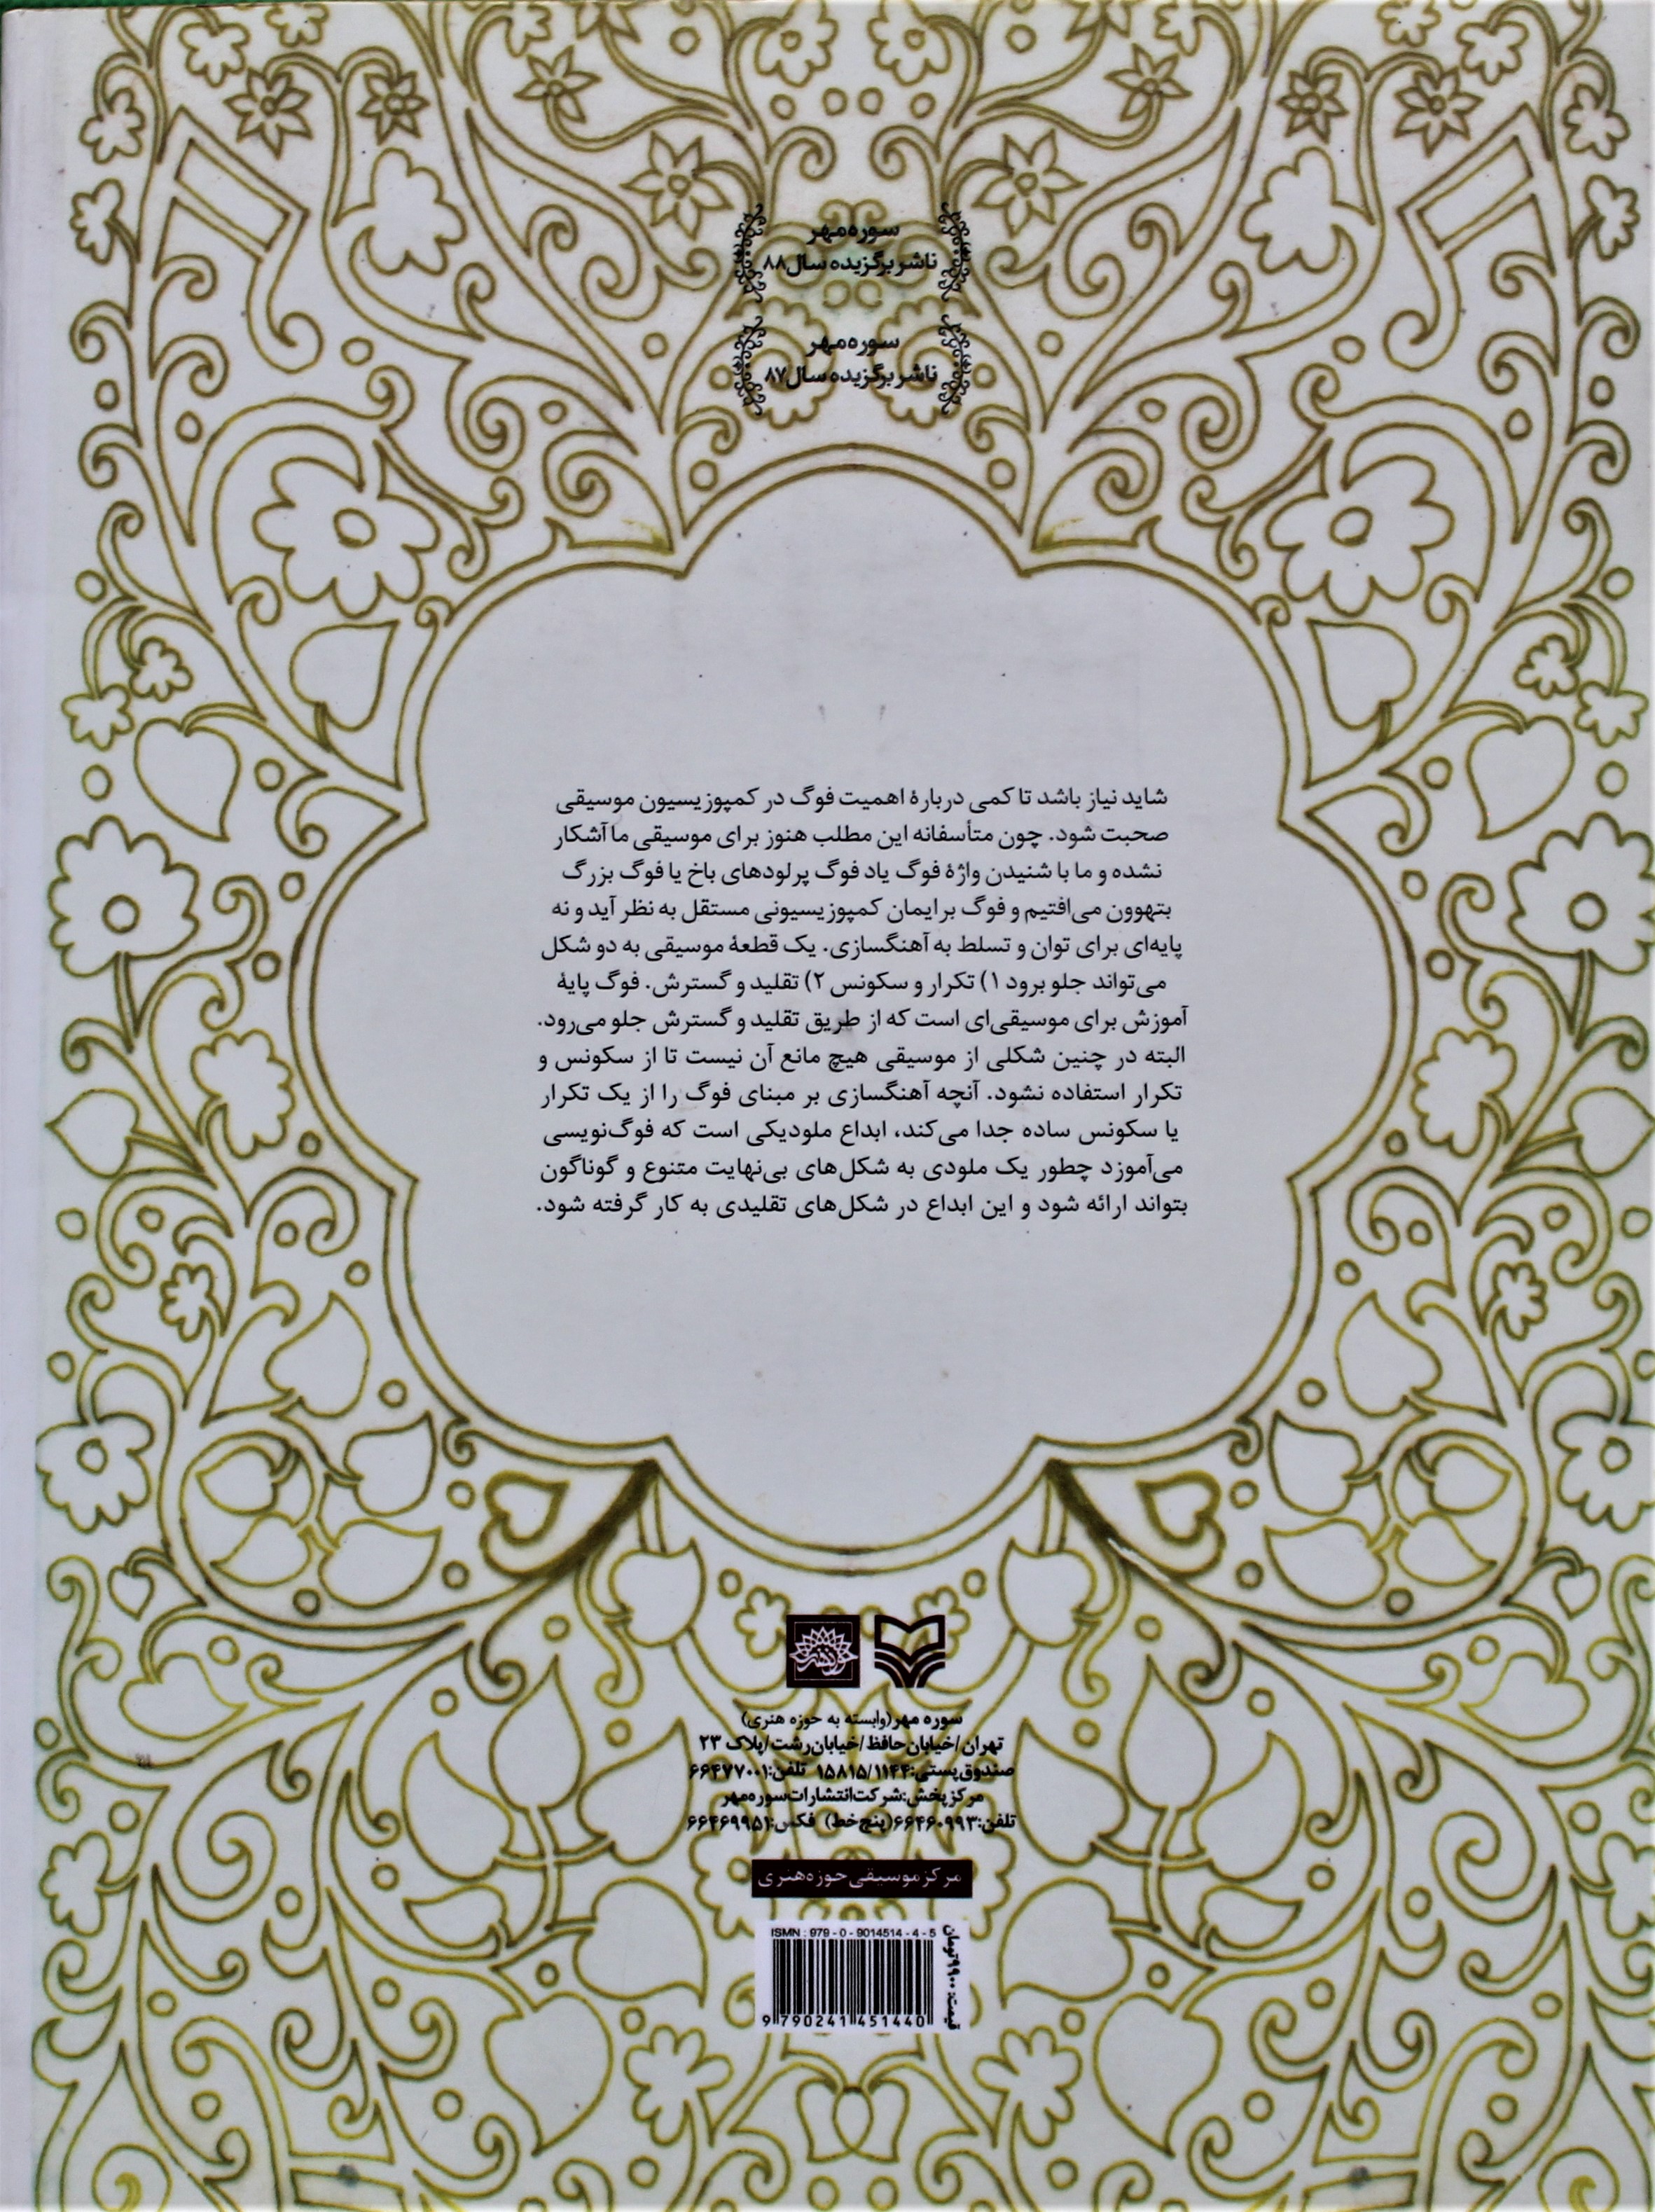 سوره‌مهر
ناشر برگزیده سال ۸۸
سوره‌مهر
ناشر برگزیده سال ۸۷
شاید نیاز باشد تا کمی دربارهٔ اهمیت فوگ در کمپوزیسیون موسیقی
صحبت شود. چون متأسفانه این مطلب هنوز برای موسیقی ما آشکار
نشده و ما با شنیدن واژهٔ فوگ یاد فوگ پرلودهای باخ یا فوگ بزرگ
بتهوون می‌افتیم و فوگ برایمان کمپوزیسیونی مستقل به نظر آید و نه
پایه‌ای برای توان و تسلط به آهنگسازی. یک قطعهٔ موسیقی به دو شکل
می‌تواند جلو برود ۱) تکرار و سکونس ۲) تقلید و گسترش. فوگ پایهٔ
آموزش برای موسیقی‌ای است که از طریق تقلید و گسترش جلو می‌رود.
البته در چنین شکلی از موسیقی هیچ مانع آن نیست تا از سکونس و
تکرار استفاده نشود. آنچه آهنگسازی بر مبنای فوگ را از یک تکرار
یا سکونس ساده جدا می‌کند، ابداع ملودیکی است که فوگ‌نویسی
می‌آموزد چطور یک ملودی به شکل‌های بی‌نهایت متنوع و گوناگون
بتواند ارائه شود و این ابداع در شکل‌های تقلیدی به کار گرفته شود.
سوره مهر(وابسته به حوزه هنری)
تهران/خیابان حافظ/خیابان رشت/پلاک ۲۳
صندوق پستی:۱۵۸۱۵/۱۱۴۴ تلفن:۶۶۴۷۷۰۰۱
مرکز پخش:شرکت انتشارات سوره‌مهر
تلفن:۶۶۴۶۰۹۹۳(پنج خط) فکس:۶۶۴۶۹۹۵۱
مرکز موسیقی حوزه هنری
ISMN : 979 - 0 - 9014514 - 4 - 5
قیمت: ۹۹۰۰تومان
9 790241 451440